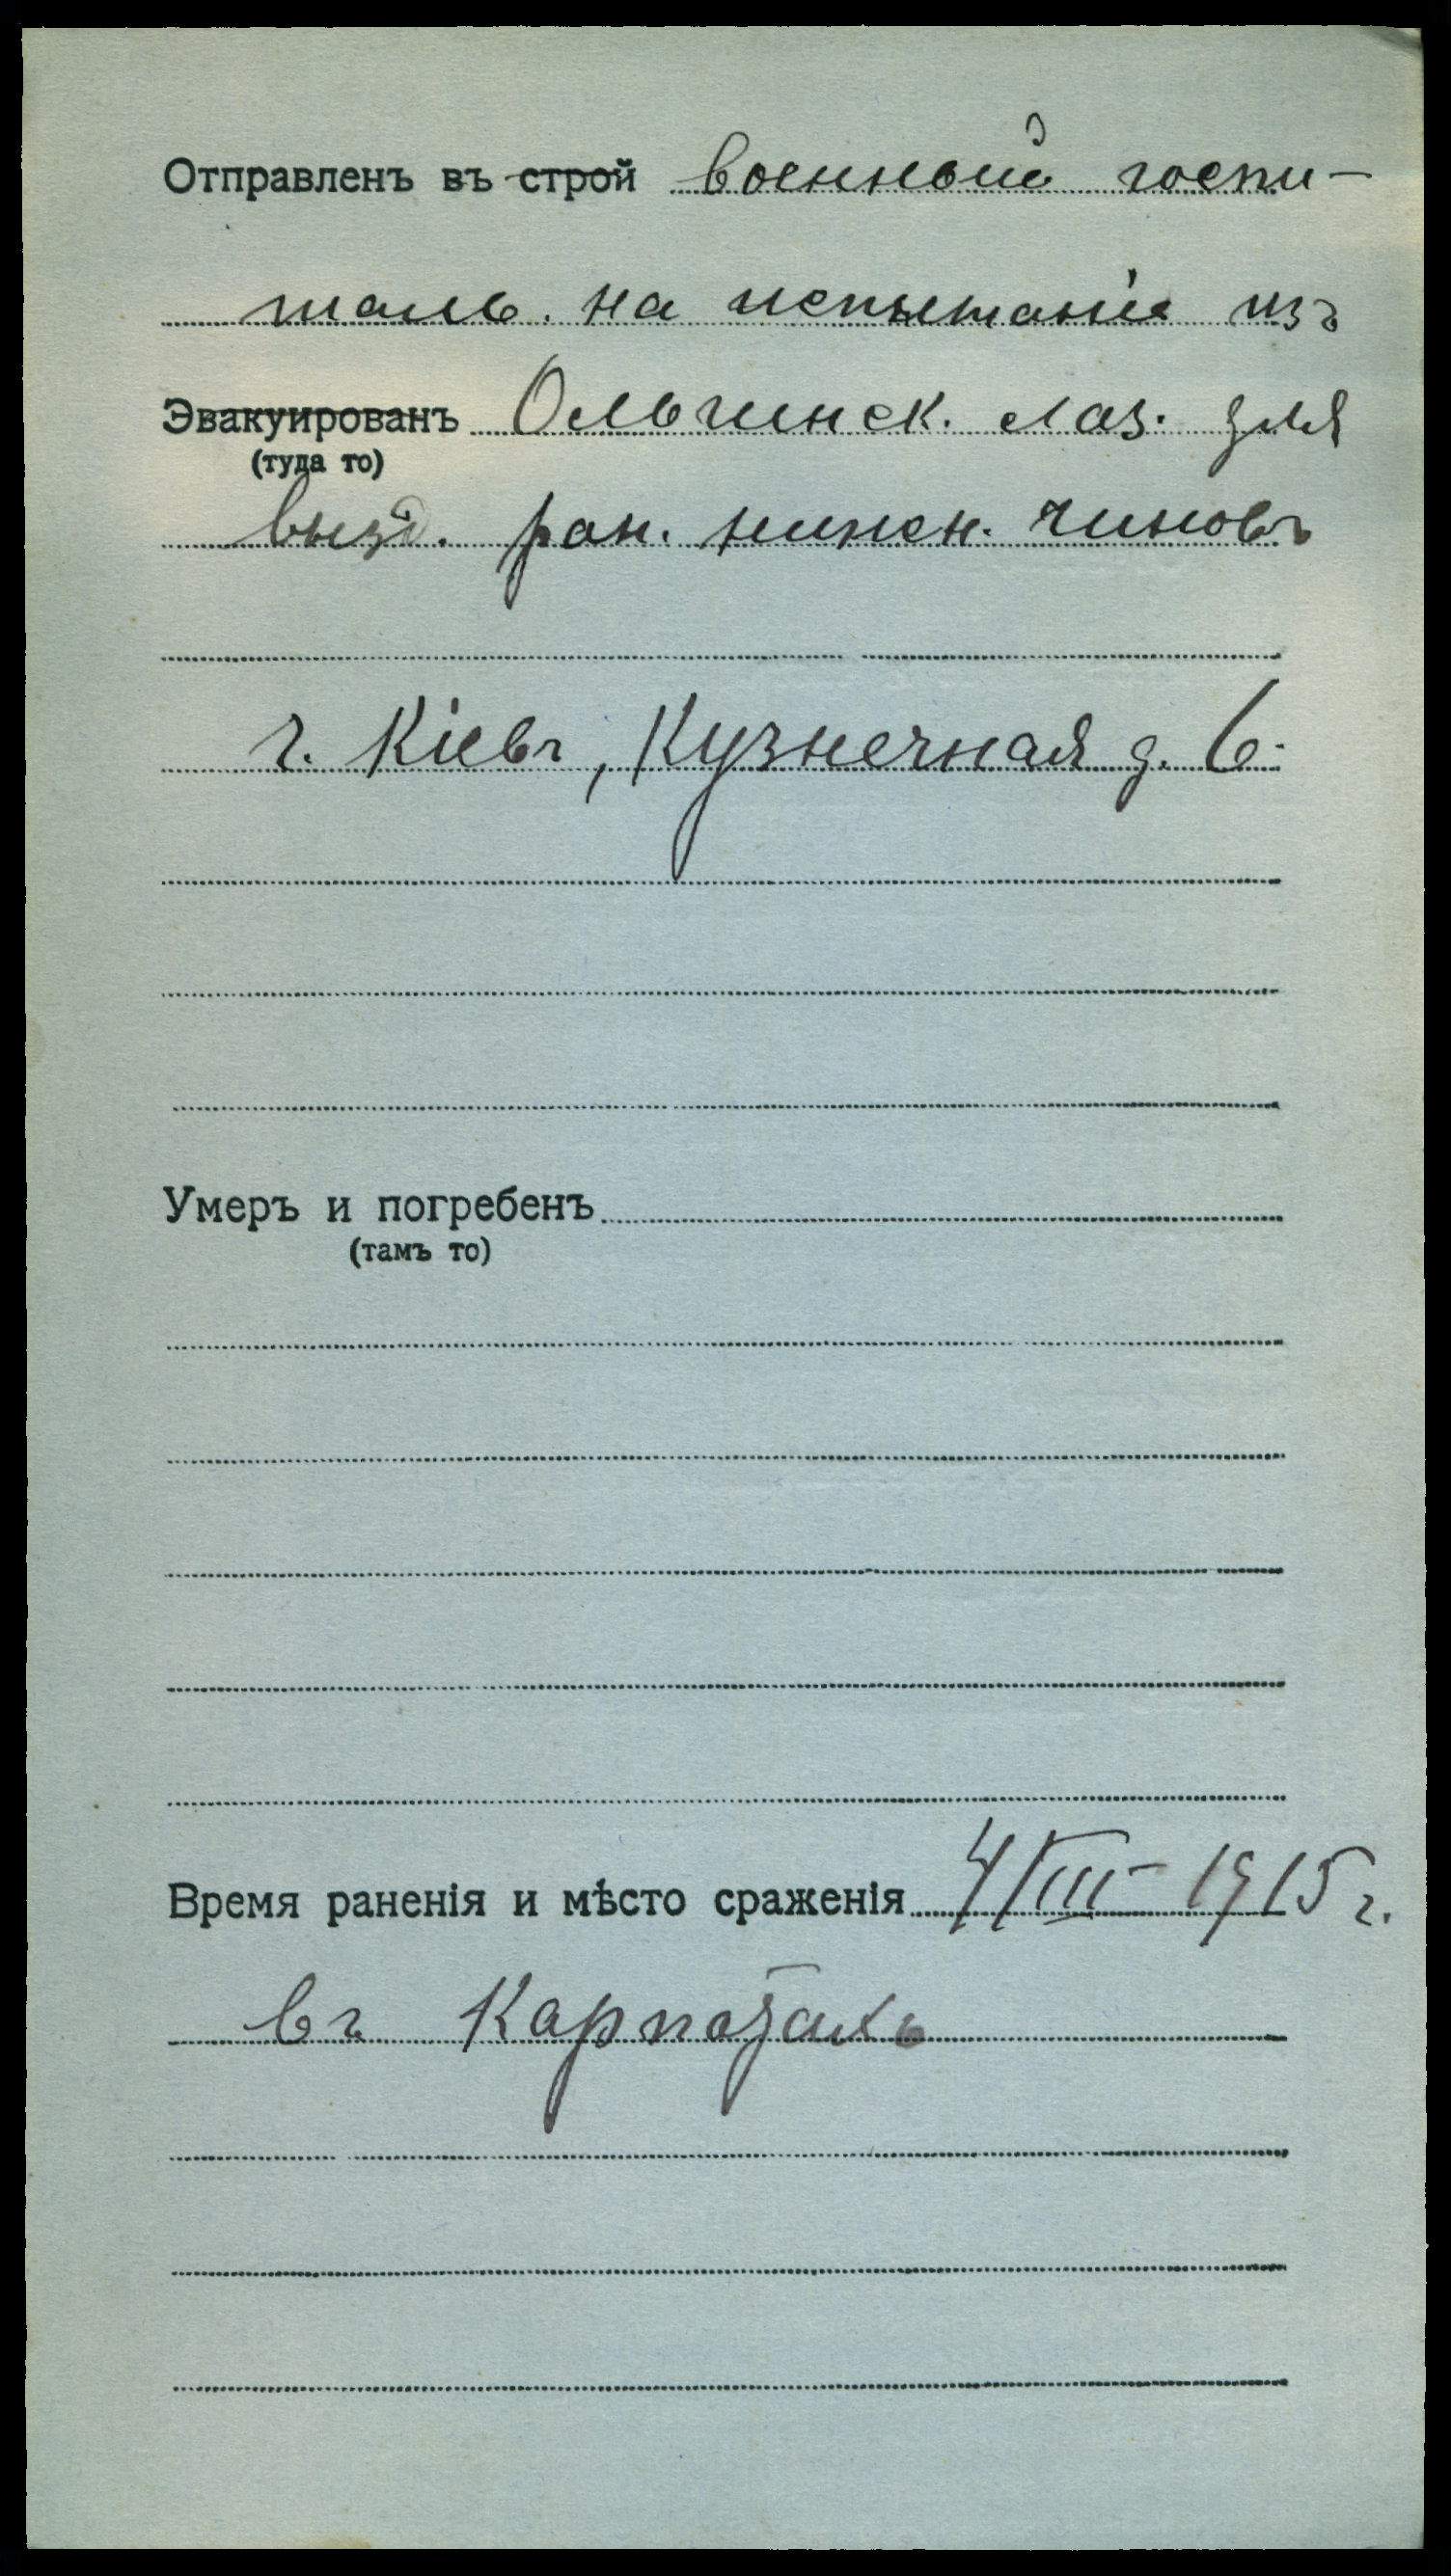 Отправленъ въ строй военный госпи-
таль. на испытаніе изъ
Эвакуированъ Ольгинск. лаз. для
(туда то)
вызд. ран. нижн. чиновъ
г. Кіевъ, Кузнечная д. 6.
Умеръ и погребенъ
(тамъ то)
Время раненія и мѣсто сраженія 4/III 1915 г.
въ Карпатахъ